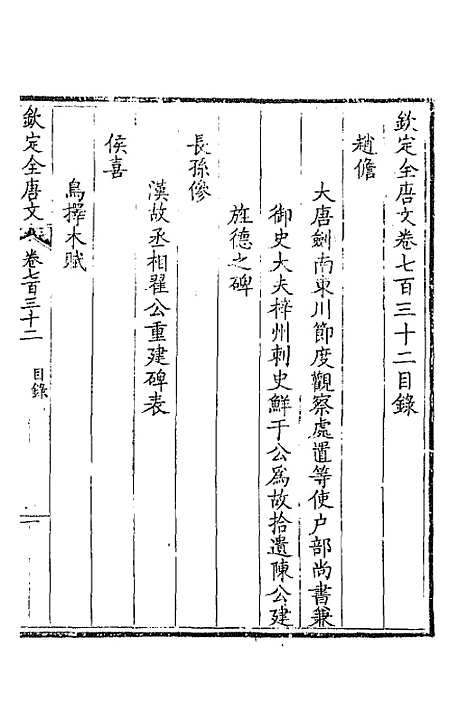 欽定全唐文卷七百三十二目錄
趙儋
大唐劍南東川節度觀察處置等使户部尚書兼
御史大夫梓州刺史鮮于公爲故拾遺陳公建
旌德之碑
長孫儳
漢故丞相翟公重建碑表
侯喜
鳥擇木賦
欽定全唐文
卷七百三十二
目錄
一